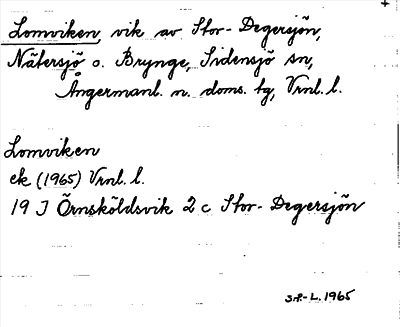 Lomviken, vik av Stor-Degersjön,
Nätersjö o. Brynge, Sidensjö sn,
Ångermanl. n. doms. tg, Vrnl. l.
Lomviken
ek (1965) Vrnl. l.
19 J Örnsköldsvik 2 c Stor-Degersjön
1965